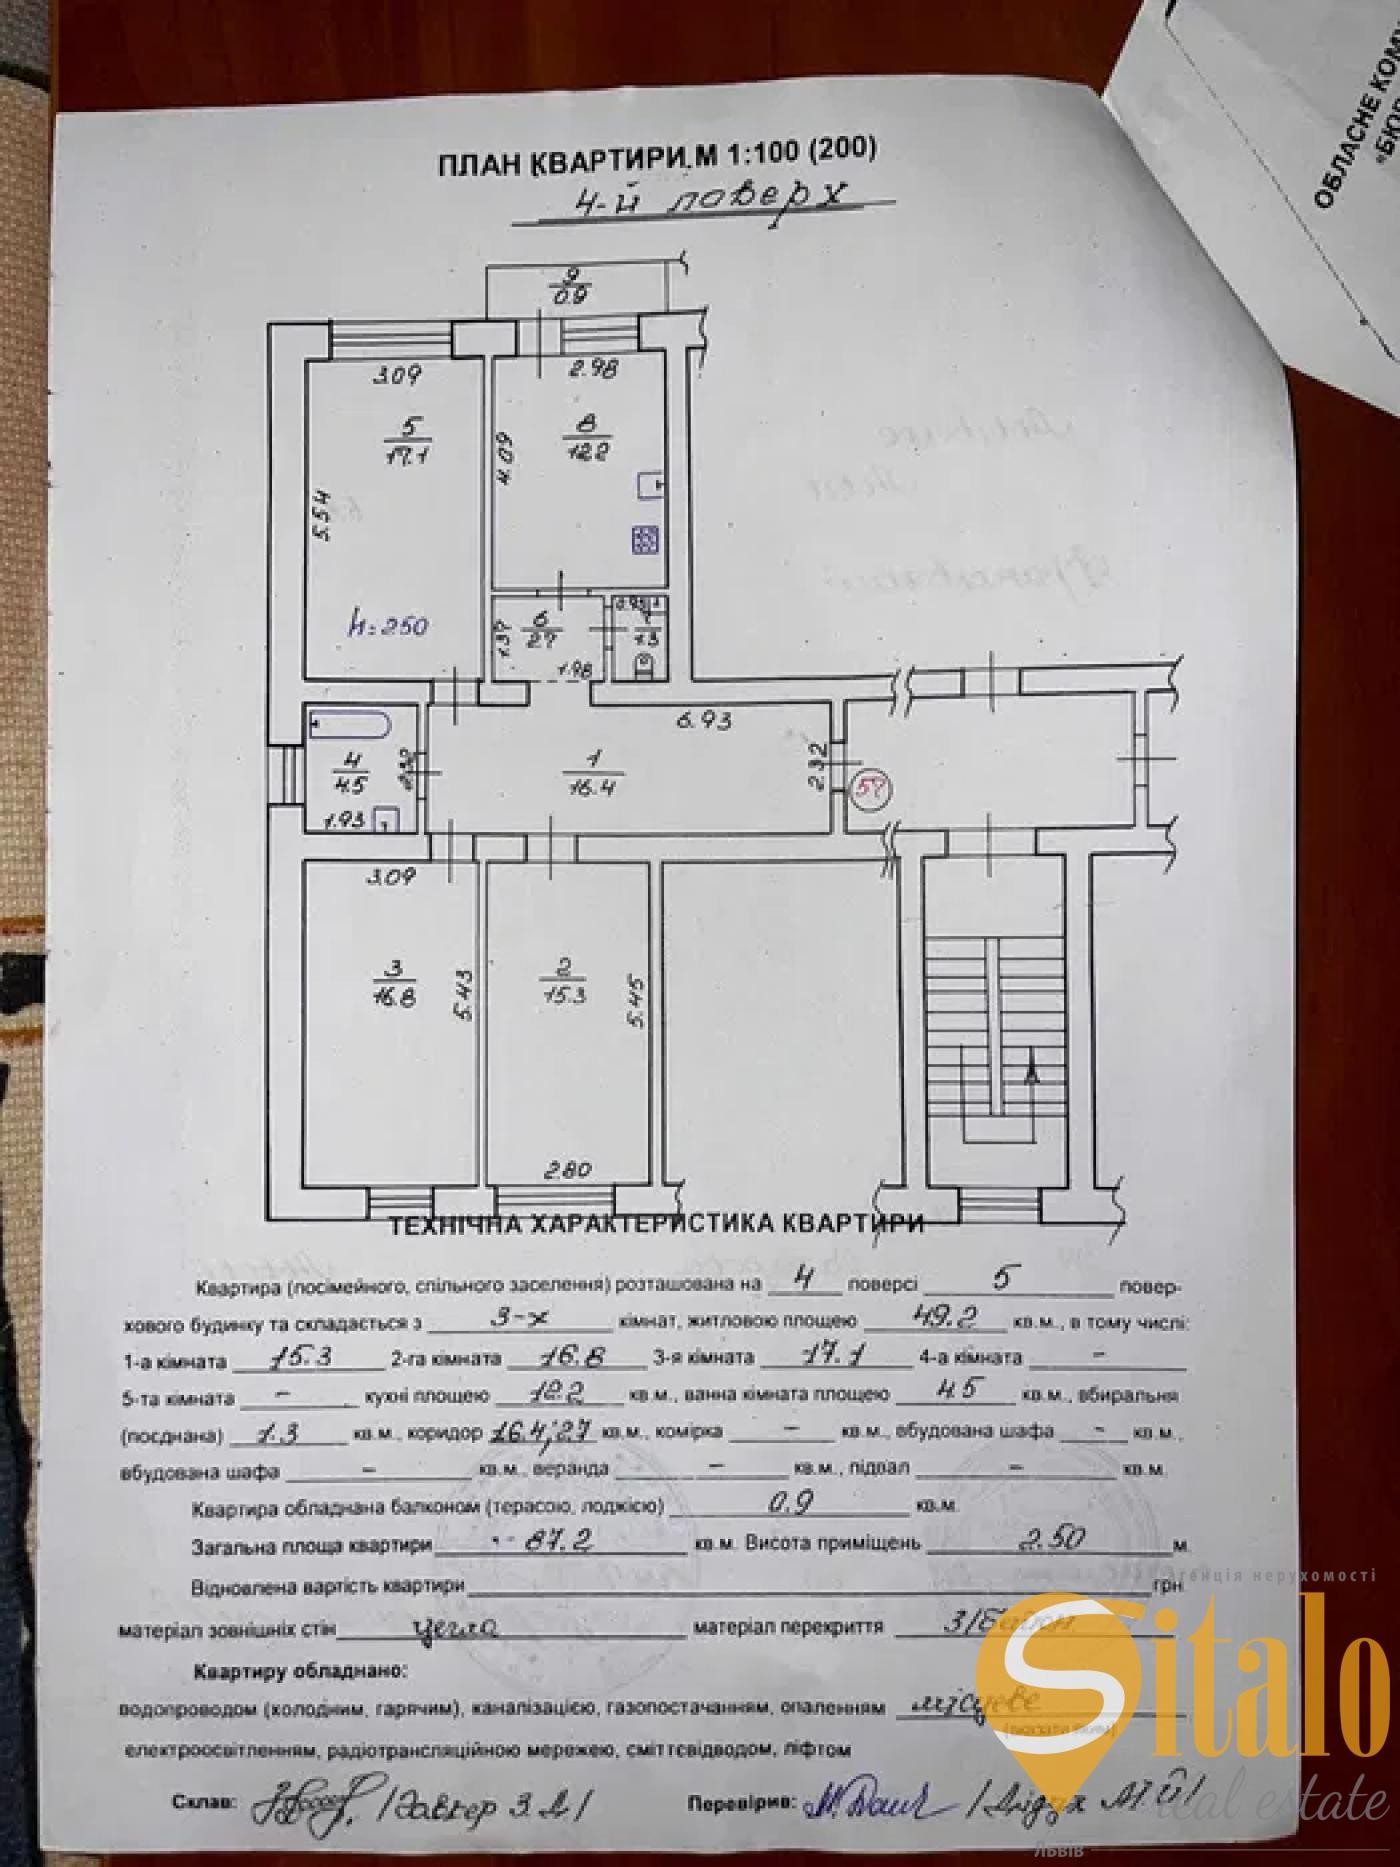 ОБЛАСНЕ КОМУ
«БЮР
ПЛАН КВАРТИРИ М 1:100 (200)
4-й поверх
9
0.9
3.09
2.98
5
17.1
8
12.2
4.09
5.54
h=2.50
0.95
7
1.3
6
2.7
1.37
1.98
6.93
4
4.5
2.32
1
16.4
2.32
57
1.93
3.09
3
16.8
5.43
2
15.3
5.45
2.80
ТЕХНІЧНА ХАРАКТЕРИСТИКА КВАРТИРИ
Квартира (посімейного, спільного заселення) розташована на 4 поверсі 5 повер-
хового будинку та складається з 3-х кімнат, житловою площею 49.2 кв.м., в тому числі:
1-а кімната 15.3 2-га кімната 16.8 3-я кімната 17.1 4-а кімната –
5-та кімната – кухні площею 12.2 кв.м., ванна кімната площею 4.5 кв.м., вбиральня
(поєднана) 1.3 кв.м., коридор 16.4; 2.7 кв.м., комірка – кв.м., вбудована шафа – кв.м.,
вбудована шафа – кв.м., веранда – кв.м., підвал – кв.м.
Квартира обладнана балконом (терасою, лоджією) 0.9 кв.м.
Загальна площа квартири 87.2 кв.м. Висота приміщень 2.50 м.
Відновлена вартість квартири грн.
матеріал зовнішніх стін цегла матеріал перекриття З/бетон
Квартиру обладнано:
водопроводом (холодним, гарячим), каналізацією, газопостачанням, опаленням місцеве
електроосвітленням, радіотрансляційною мережею, сміттєвідводом, ліфтом
Склав:
Перевірив:
агенція нерухомості
Sitalo
real estate
ЛЬВІВ